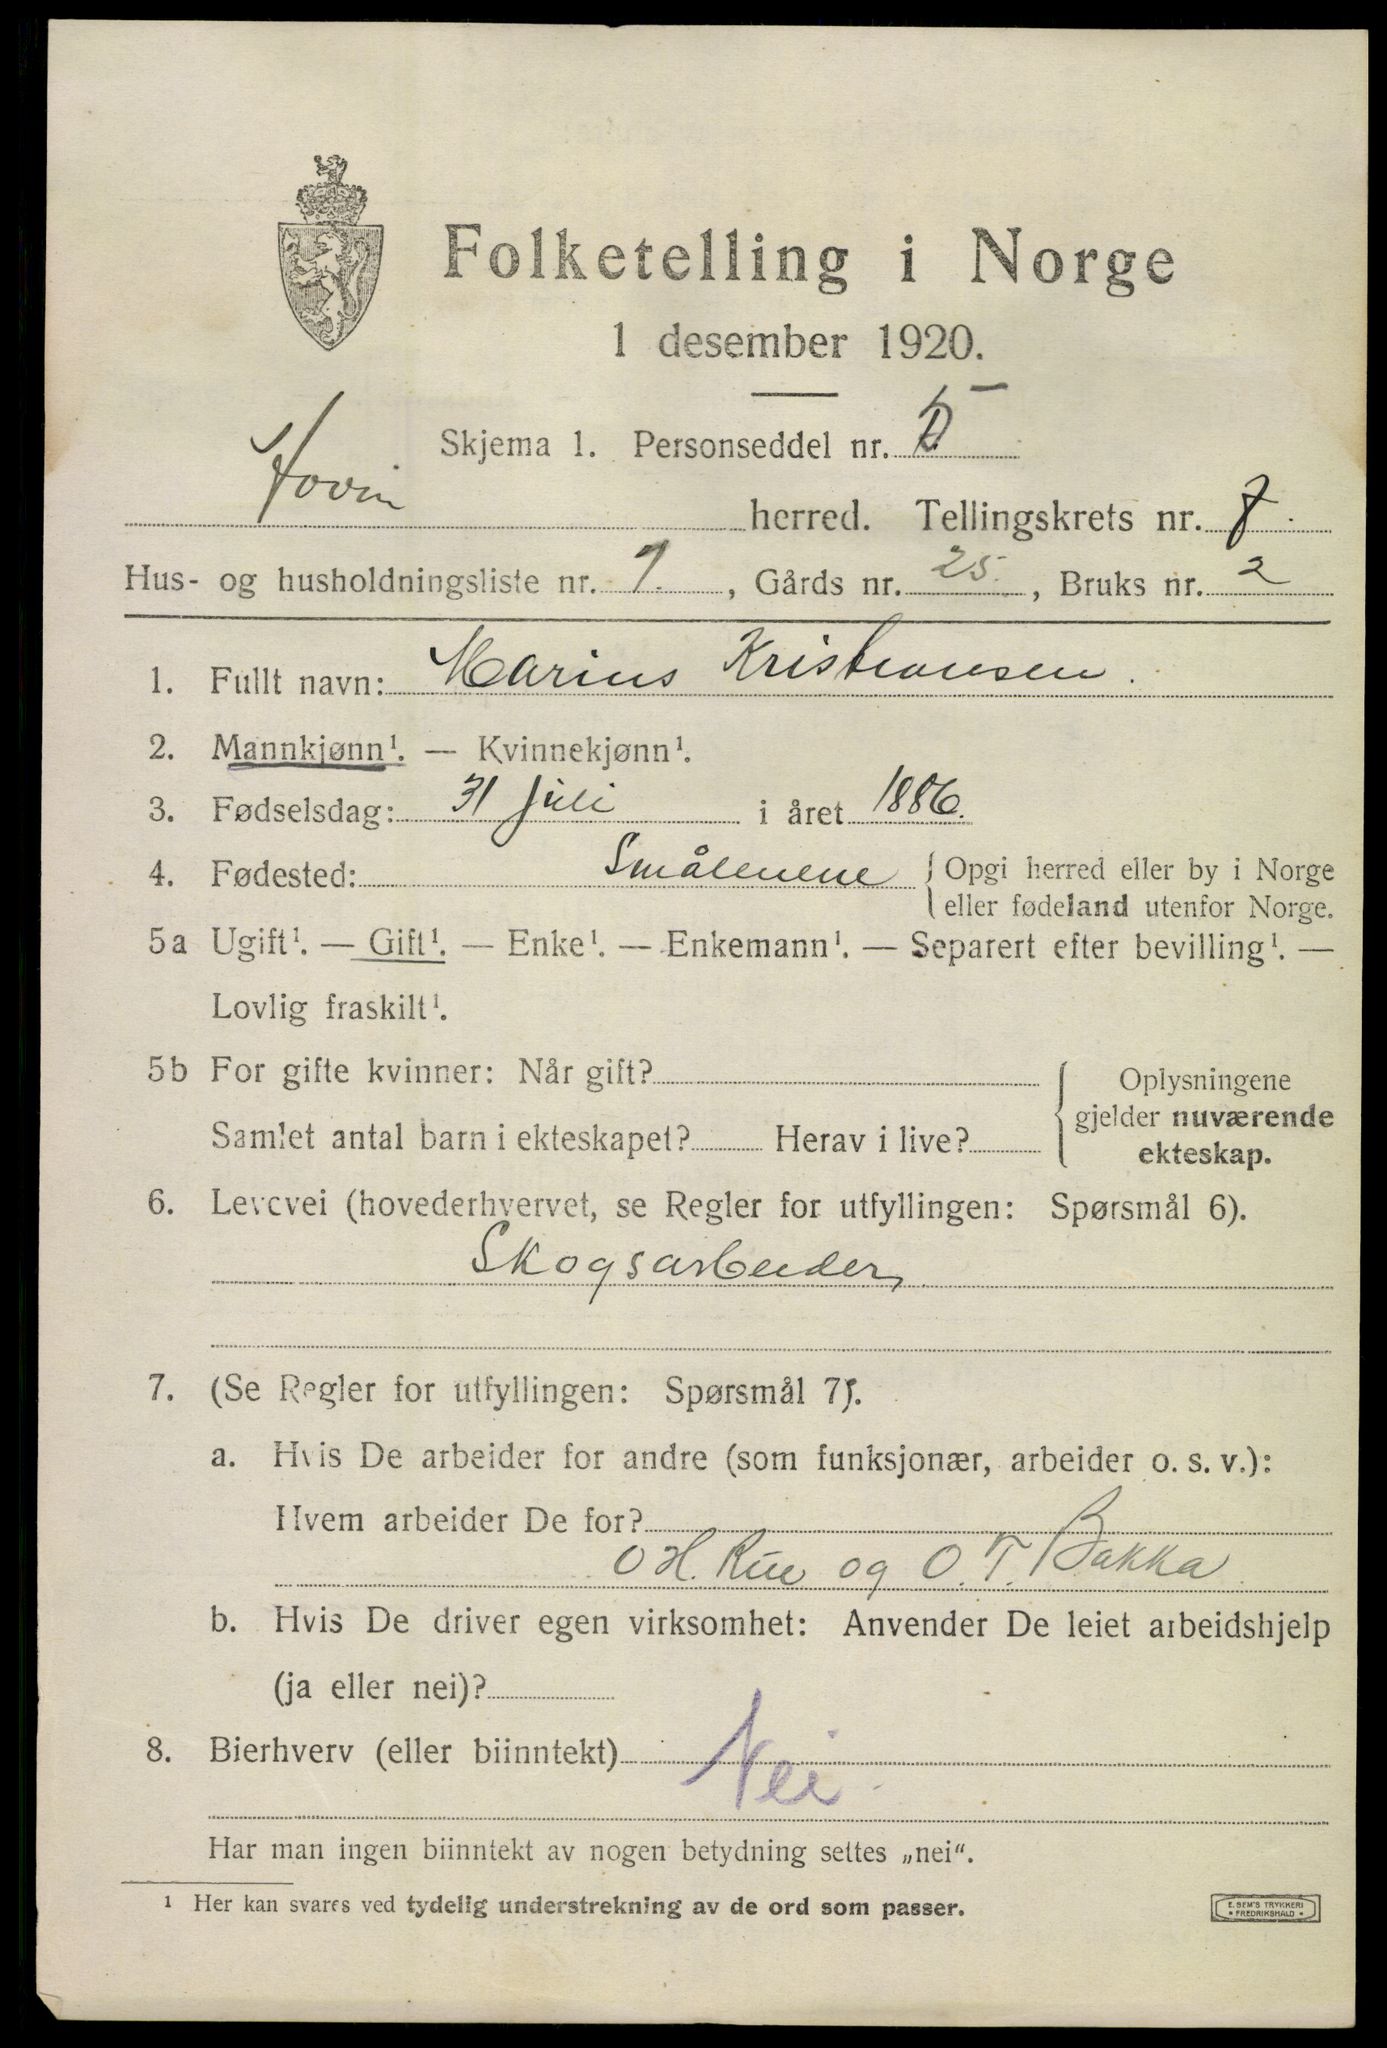 Folketelling i Norge
1 desember 1920.
Skjema 1. Personseddel nr.
Hovin herred. Tellingskrets nr. 7.
Hus- og husholdningsliste nr. 7. , Gårds nr. 25. , Bruks nr. 2
1. Fullt navn: Marius Kristiansen.
2. Mannkjønn¹. — Kvinnekjønn¹.
3. Fødselsdag: 31 juli i året 1886.
4. Fødested: Smålenene { Opgi herred eller by i Norge
eller fødeland utenfor Norge.
5a Ugift¹. — Gift¹. — Enke¹. — Enkemann¹. — Separert efter bevilling¹. —
Lovlig fraskilt¹.
5b For gifte kvinner: Når gift?
Samlet antal barn i ekteskapet? Herav i live?
Oplysningene
gjelder nuværende
ekteskap.
6. Levevei (hovederhvervet, se Regler for utfyllingen: Spørsmål 6).
Skogsarbeider,
7. (Se Regler for utfyllingen: Spørsmål 7).
a. Hvis De arbeider for andre (som funksjonær, arbeider o. s. v.):
Hvem arbeider De for?
O H. Rue og O. T. Bakka
b. Hvis De driver egen virksomhet: Anvender De leiet arbeidshjelp
(ja eller nei)?
8. Bierhverv (eller biinntekt) Nei.
Har man ingen biinntekt av nogen betydning settes „nei“.
¹ Her kan svares ved tydelig understrekning av de ord som passer.
E. SEM'S TRYKKERI
• FREDRIKSHALD •